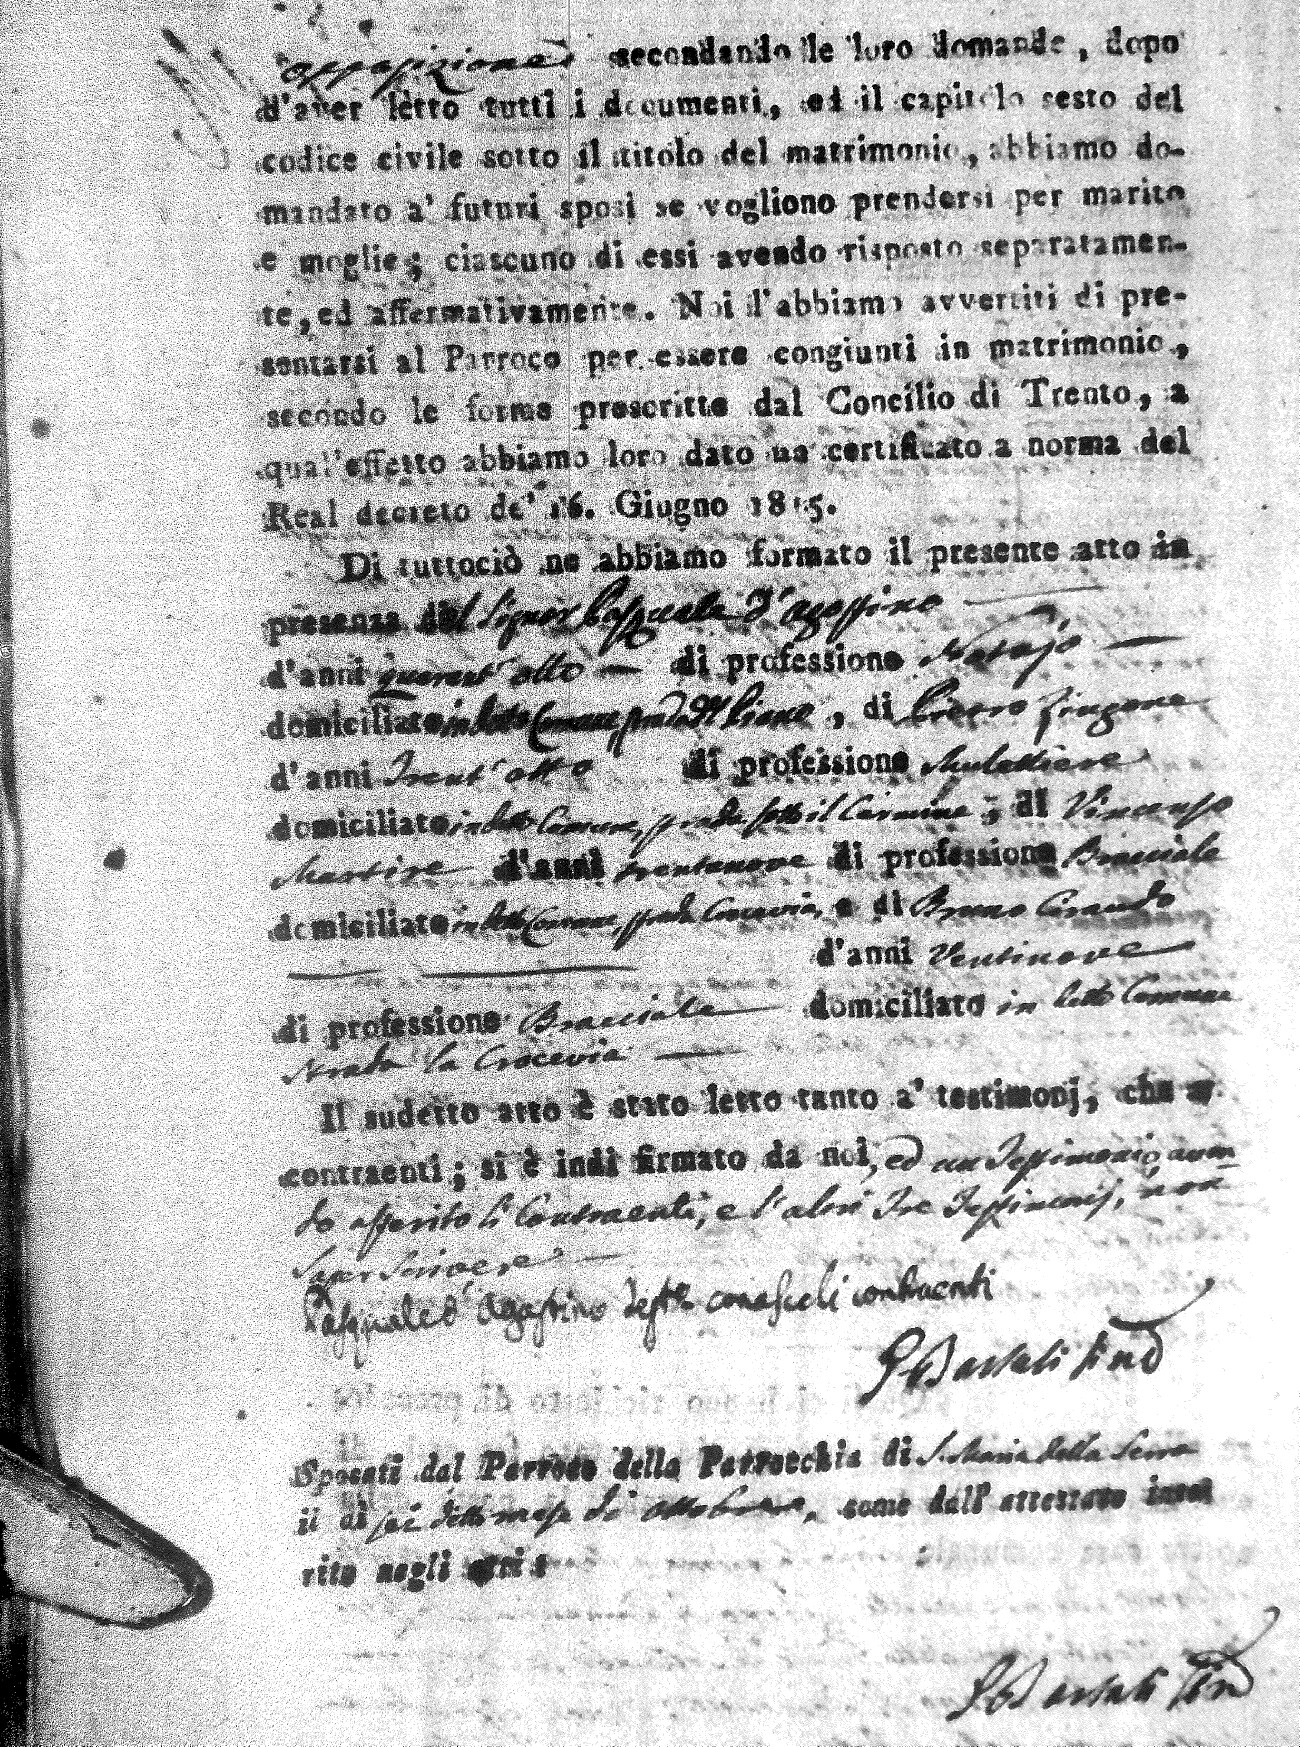 opposizione secondando le loro domande, dopo
d'aver letto tutti i documenti, ed il capitolo sesto del
codice civile sotto il titolo del matrimonio, abbiamo do-
mandato a' futuri sposi se vogliono prendersi per marito
e moglie; ciascuno di essi avendo risposto separatamen-
te, ed affermativamente. Noi l'abbiamo avvertiti di pre-
sentarsi al Parroco per essere congiunti in matrimonio,
secondo le forme prescritte dal Concilio di Trento, a
qual'effetto abbiamo loro dato un certificato a norma del
Real decreto de' 16. Giugno 1815.
Di tuttociò ne abbiamo formato il presente atto in
presenza del Signor Pasquale D'Agostino
d'anni quarant'otto di professione Notajo
domiciliato in detto Comune, strada del Piano, di Pietro Zingone
d'anni Trent'otto di professione Mulattiere
domiciliato in detto Comune, strada sotto il Carmine; di Vincenzo
Martire d'anni trentanove di professione Bracciale
domiciliato in detto Comune, strada Crocevia, e di Bruno Carando
d'anni Ventinove
di professione Bracciale domiciliato in detto Comune
Strada la Crocevia
Il sudetto atto è stato letto tanto a' testimonj, che a'
contraenti; si è indi firmato da noi, ed un Testimonio aven-
do asserito li Contraenti, e l'altri Tre Testimonj, non
Saper Scrivere
Pasquale d'Agostino contraenti
Bartoli Sind
Sposati dal Parroco della Parrocchia di S. Maria della Serra
il dì sei detto mese di Ottobre, come dall'attestato inse
rito negli atti
Bartoli Sin